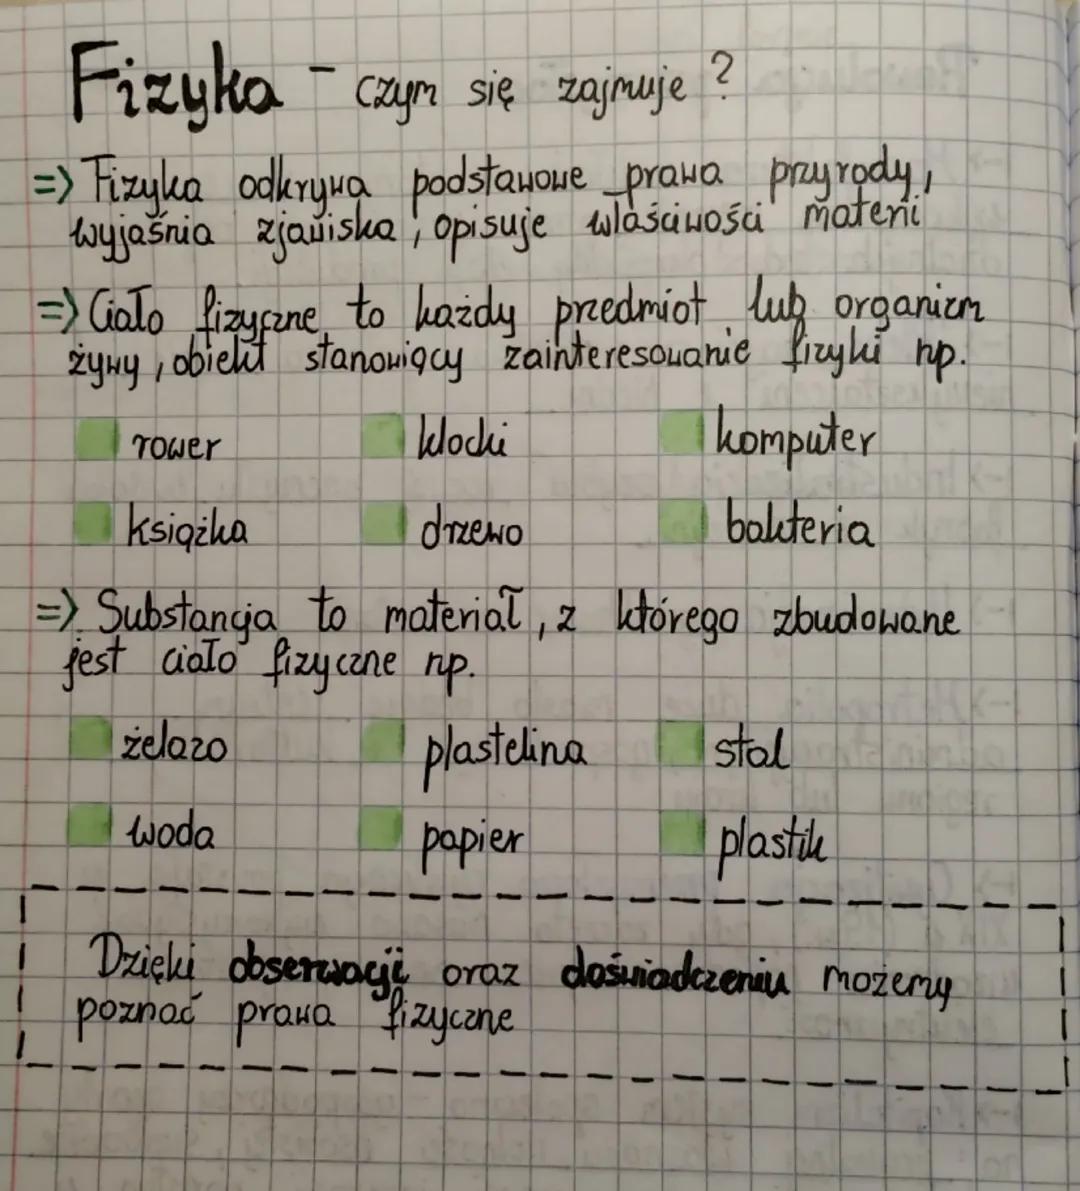 Fizyka - czym się zajmuje?
=> Fizyka odkrywa podstawowe prawa przyrody,
wyjaśnia zjawiska, opisuje właściwości materii
=> Ciało fizyczne to każdy przedmiot lub organizm
żywy, obiekt stanowiący zainteresowanie fizyki np.
rower klocki komputer
książka drzewo bakteria
=> Substancja to materiał, z którego zbudowane
jest ciało fizyczne np.
żelazo plastelina stal
woda papier plastik
Dzięki obserwacji oraz doświadczeniu możemy
poznać prawa fizyczne